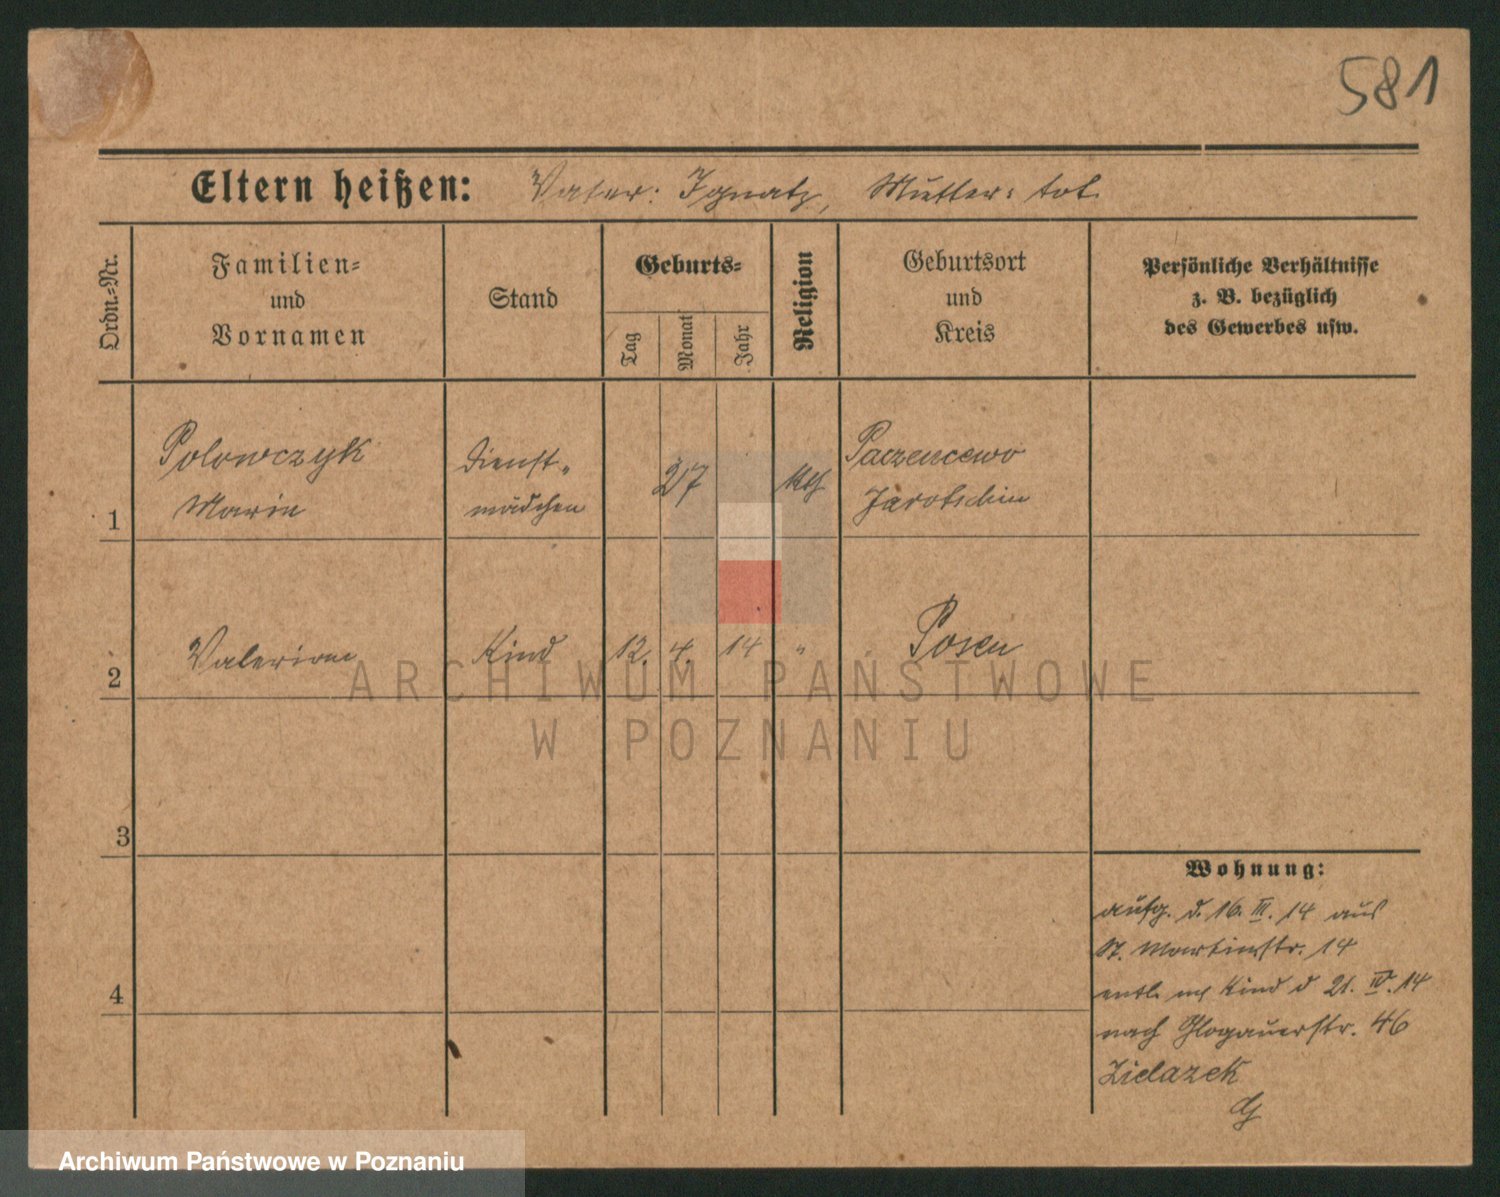 581
Eltern heißen: Vater: Ignatz, Mutter: tot.
Ordn.-Nr.
Familien-
und
Vornamen
Stand
Geburts-
Tag
Monat
Jahr
Religion
Geburtsort
und
Kreis
Persönliche Verhältnisse
z. B. bezüglich
des Gewerbes usw.
1
Polowczyk
Marie
Dienst-
mädchen
27
kth
Jarotschin
2
Valerian
Kind
12. 4. 14
"
Posen
3
4
Wohnung:
aufg. d. 16. III. 14 aus
St. Martinstr. 14
entl. m Kind d 21. IV. 14
nach Glogauerstr. 46
Zielazek
ARCHIWUM PAŃSTWOWE
W POZNANIU
Archiwum Państwowe w Poznaniu